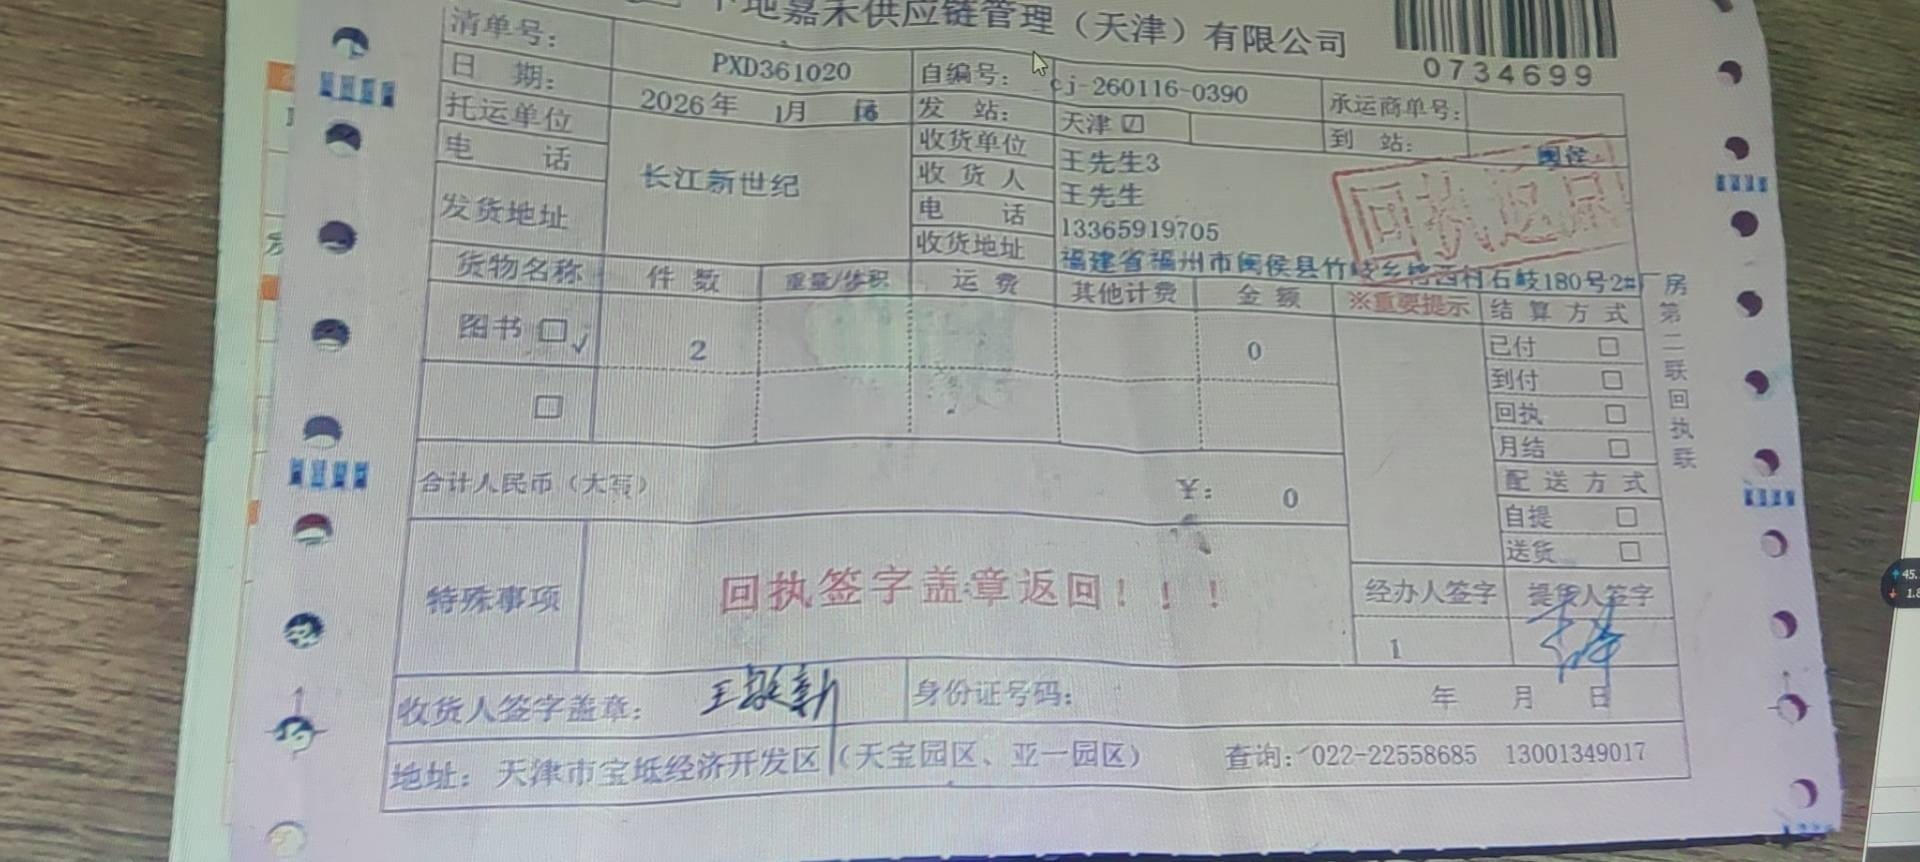 地嘉禾供应链管理（天津）有限公司
0734699
清单号： PXD361020 自编号： cj-260116-0390 承运商单号：
日 期： 2026年 1月 16 发 站： 天津☑ 到 站： 闽侯
托运单位 长江新世纪 收货单位 王先生3
电 话 收货人 王先生
发货地址 电 话 13365919705
收货地址 福建省福州市闽侯县竹岐乡 西村石岐180号2#厂房
回执返还
货物名称 件数 重量/体积 运费 其他计费 金额 ※重要提示 结算方式
图书 □√ 2 0 已付 □
□ 到付 □
回执 □
月结 □
合计人民币（大写） ¥： 0 配送方式
自提 □
送货 □
特殊事项 回执签字盖章返回！！！ 经办人签字 提货人签字
1
收货人签字盖章： 王 新 身份证号码： 年 月 日
地址： 天津市宝坻经济开发区（天宝园区、亚一园区） 查询：022-22558685 13001349017
第二联回执联
45.
1.8